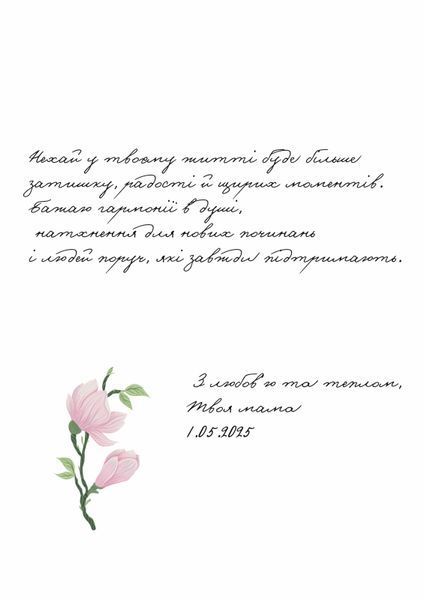 Нехай у твоєму житті буде більше
затишку, радості й щирих моментів.
Бажаю гармонії в душі,
натхнення для нових починань
і людей поруч, які завжди підтримають.
З любов'ю та теплом,
Твоя мама
1.05.2025